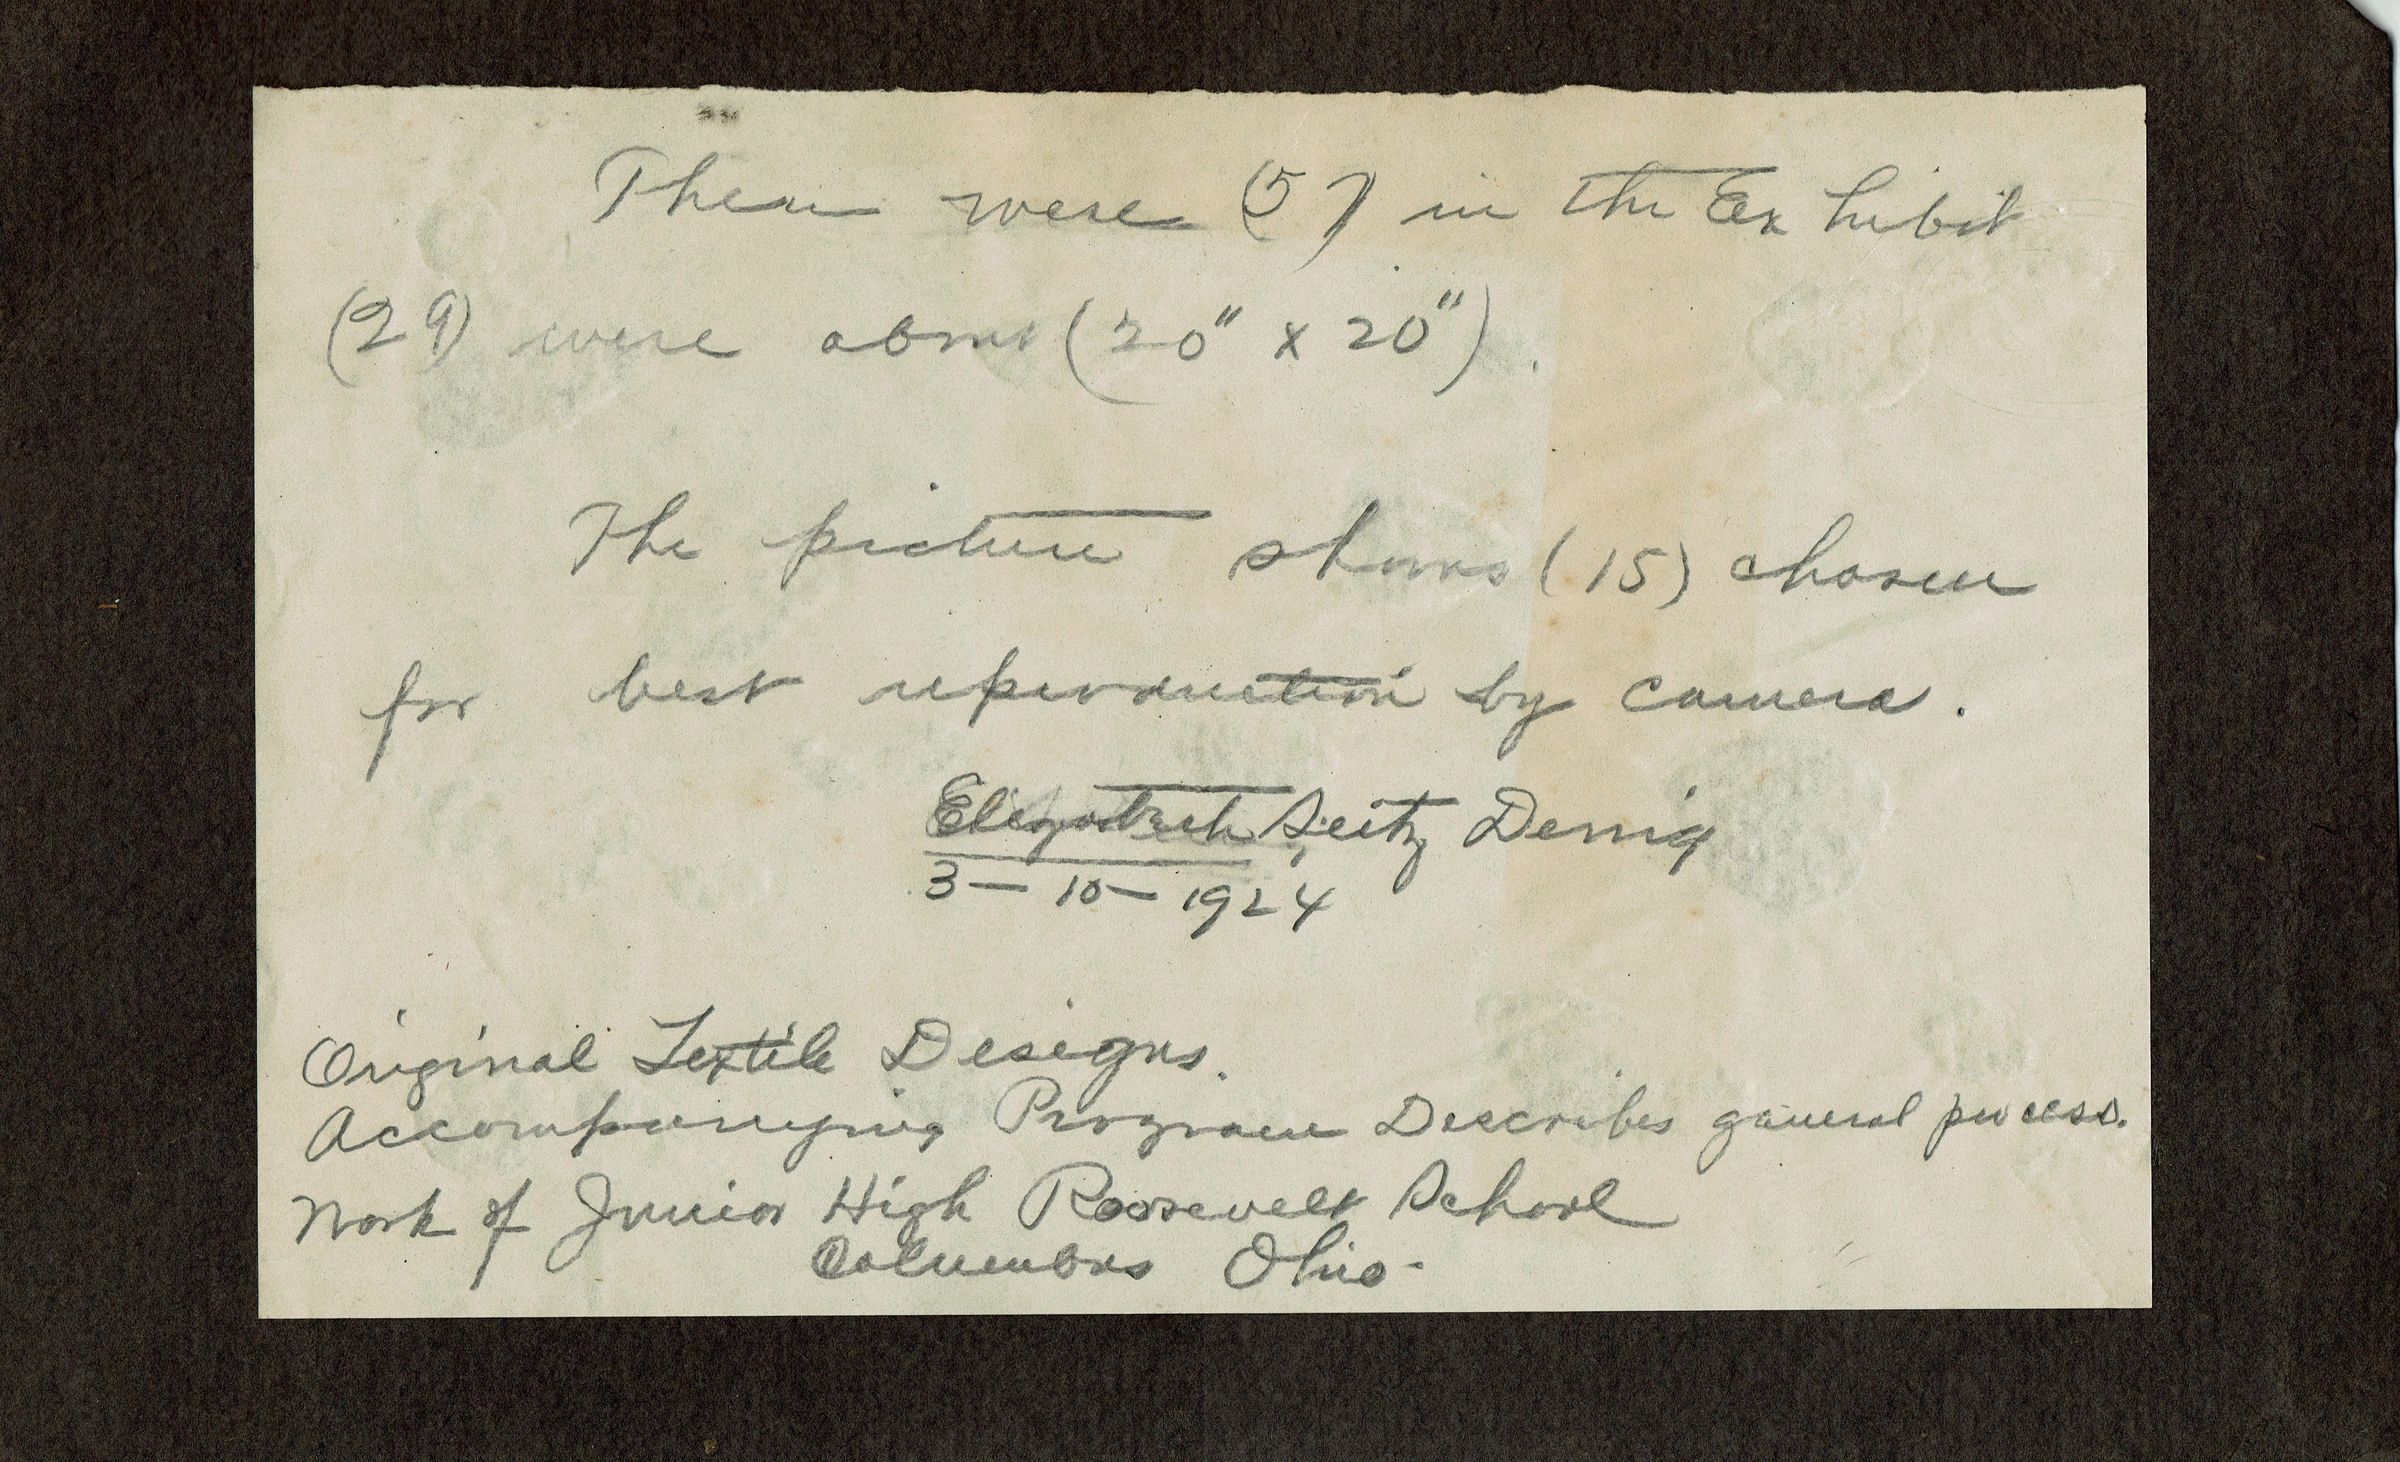 There were (57) in the Exhibit
(29) were about (20" x 20").
The picture shows (15) chosen
for best reproduction by camera.
Elizabeth Seitz Dennig
3 – 10 – 1924
Original Textile Designs.
Accompanying Program Describes general process.
Work of Junior High Roosevelt School
Columbus Ohio.